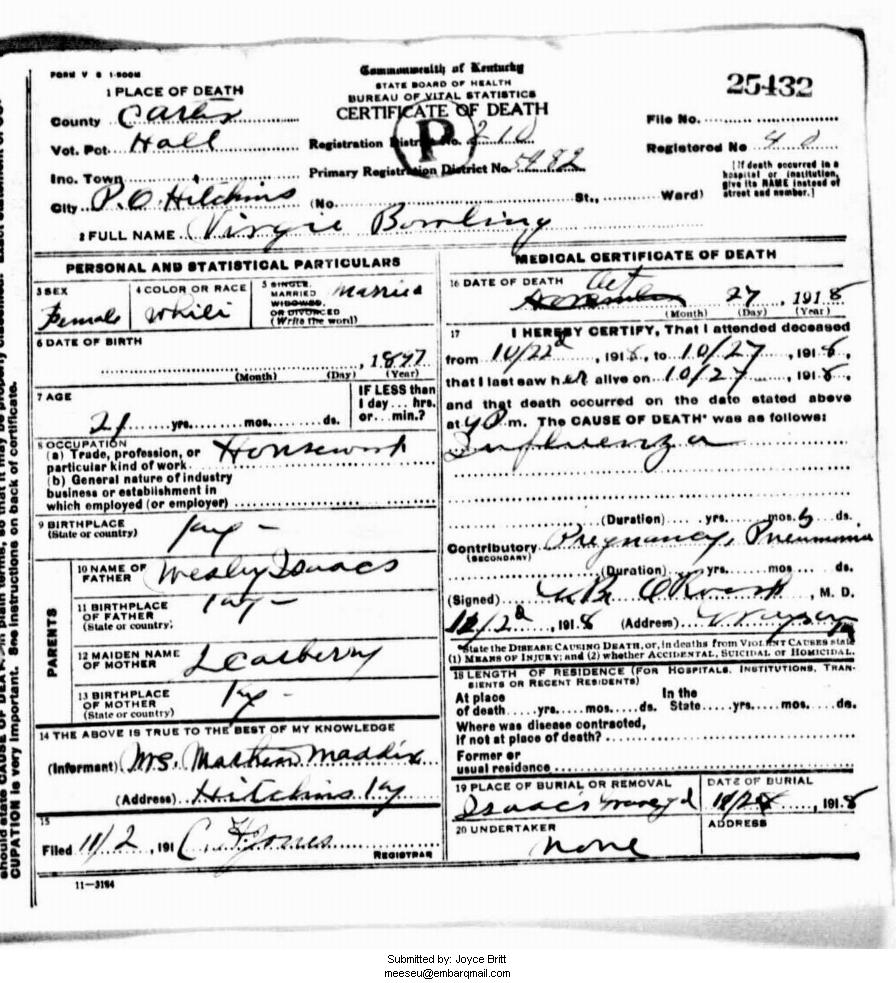 FORM V S 1-500M
Commonwealth of Kentucky
STATE BOARD OF HEALTH
BUREAU OF VITAL STATISTICS
CERTIFICATE OF DEATH
25432
1 PLACE OF DEATH
County Carter
Vot. Pct. Hall
Inc. Town
City P.O. Hitchins (No. St., Ward)
Registration District No. 210
P
Primary Registration District No. 5482
File No.
Registered No 40
[If death occurred in a hospital or institution, give its NAME instead of street and number.]
2 FULL NAME Virgie Bowling
PERSONAL AND STATISTICAL PARTICULARS
3 SEX Female
4 COLOR OR RACE White
5 SINGLE, MARRIED WIDOWED, OR DIVORCED (Write the word) Married
6 DATE OF BIRTH
, 1897
(Month) (Day) (Year)
7 AGE
21 yrs. mos. ds.
IF LESS than 1 day... hrs. or... min.?
8 OCCUPATION
(a) Trade, profession, or particular kind of work Housework
(b) General nature of industry business or establishment in which employed (or employer)
9 BIRTHPLACE (State or country) Ky -
PARENTS
10 NAME OF FATHER Wesley Isaacs
11 BIRTHPLACE OF FATHER (State or country) Ky -
12 MAIDEN NAME OF MOTHER
13 BIRTHPLACE OF MOTHER (State or country) Ky -
14 THE ABOVE IS TRUE TO THE BEST OF MY KNOWLEDGE
(Informant) Mrs. Maddix
(Address) Hitchins Ky
15
Filed 11/2, 191 C. Jones
REGISTRAR
11-3184
MEDICAL CERTIFICATE OF DEATH
16 DATE OF DEATH Oct
November 27, 1918
(Month) (Day) (Year)
17 I HEREBY CERTIFY, That I attended deceased
from 10/22d, 1918, to 10/27, 1918,
that I last saw her alive on 10/27, 1918,
and that death occurred on the date stated above
at P.m. The CAUSE OF DEATH* was as follows:
Influenza
(Duration) yrs. mos. 6 ds.
Contributory Pregnancy, Pneumonia
(SECONDARY)
(Duration) yrs. mos. ds.
(Signed) M. D.
, 1918 (Address)
*State the DISEASE CAUSING DEATH, or, in deaths from VIOLENT CAUSES state
(1) MEANS OF INJURY; and (2) whether ACCIDENTAL, SUICIDAL or HOMICIDAL.
18 LENGTH OF RESIDENCE (FOR HOSPITALS, INSTITUTIONS, TRANSIENTS OR RECENT RESIDENTS)
At place of death yrs. mos. ds. In the State yrs. mos. ds.
Where was disease contracted,
if not at place of death?
Former or
usual residence
19 PLACE OF BURIAL OR REMOVAL
Isaacs Graveyd
DATE OF BURIAL
, 1918
20 UNDERTAKER
none
ADDRESS
should state CAUSE OF DEATH in plain terms, so that it may be properly classified.
CUPATION is very important. See instructions on back of certificate.
Submitted by: Joyce Britt
meeseu@embarqmail.com